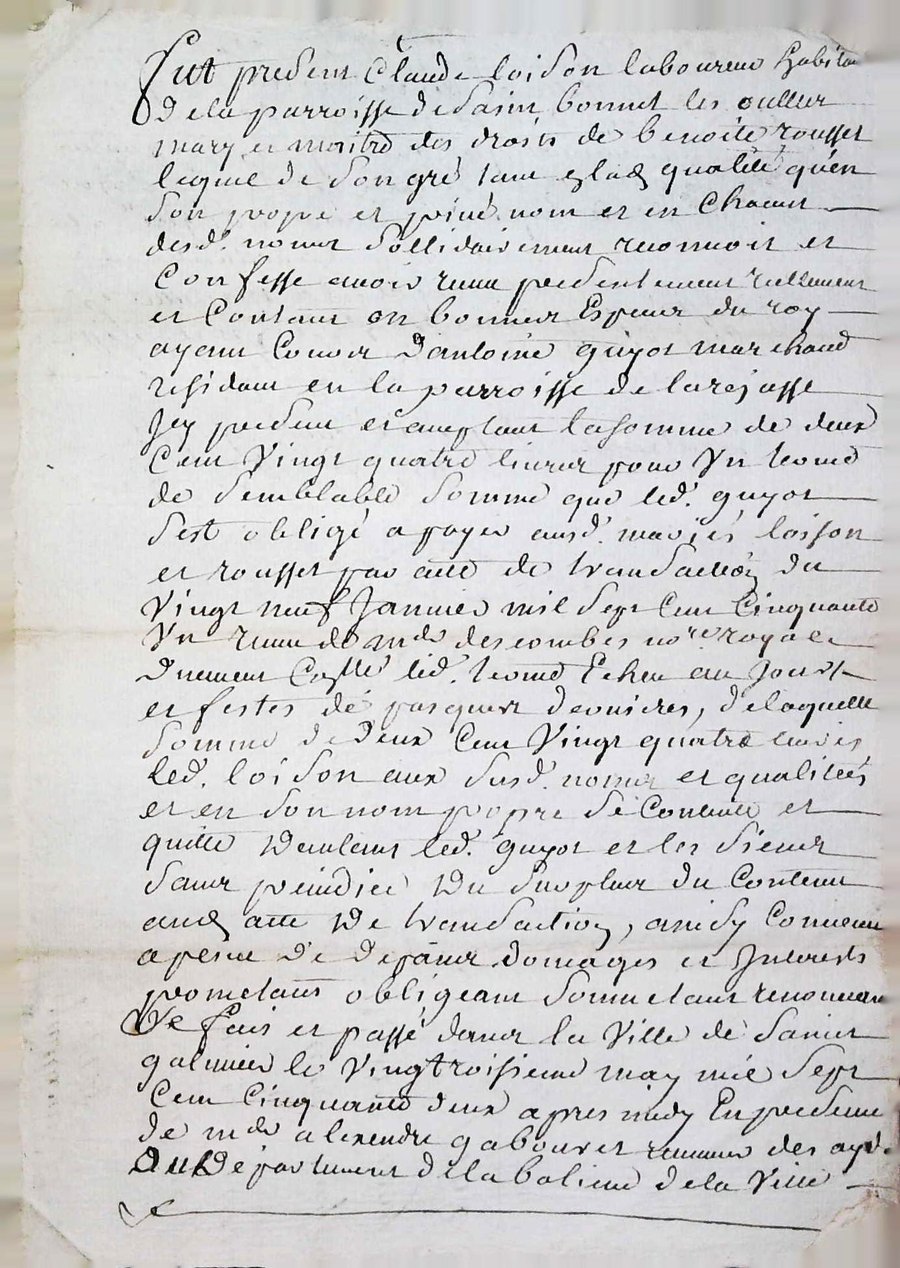 Fut present Claude loison laboureur habita
de la parroisse de Saint bonnet les oullier
mary et maitre des droits de benoite rousset
lequel de son gré tant esd qualité qu'en
son propre et privé nom et en Chacun
desd. noms sollidairement reconnoit et
Confesse avoir receu presentement reellement
et Contant en bonnes Especes du roy
ayant Cours d'antoine guyot marchand
residant en la parroisse de larajasse
Icy present et acceptant la somme de deux
Cent vingt quatre livres pour un terme
de semblable somme que led. guyot
s'est obligé a payer ausd. mariés loison
et rousset par acte de transaction du
vingt neuf Janvier mil sept Cent Cinquante
un receu de me descombes nore royal
duement led. terme Echeu au jour
et festes de pasques dernieres, de laquelle
somme de deux Cent vingt quatre livres
led. loison aux susd. noms et qualitées
et en son nom propre se Contente et
quitte led. guyot et les siens
sans prejudice du surplus du Contenu
aud acte de transaction, ainsy Convenu
a peine de depans domages et Interests
prometant obligeant soumetant renoncean
fait et passé dans la ville de Saint
galmier le vingtroisieme may mil sept
Cent Cinquante deux apres midy En presence
de me alexendre gabouret receveur des ayd.
du departement de la de la ville